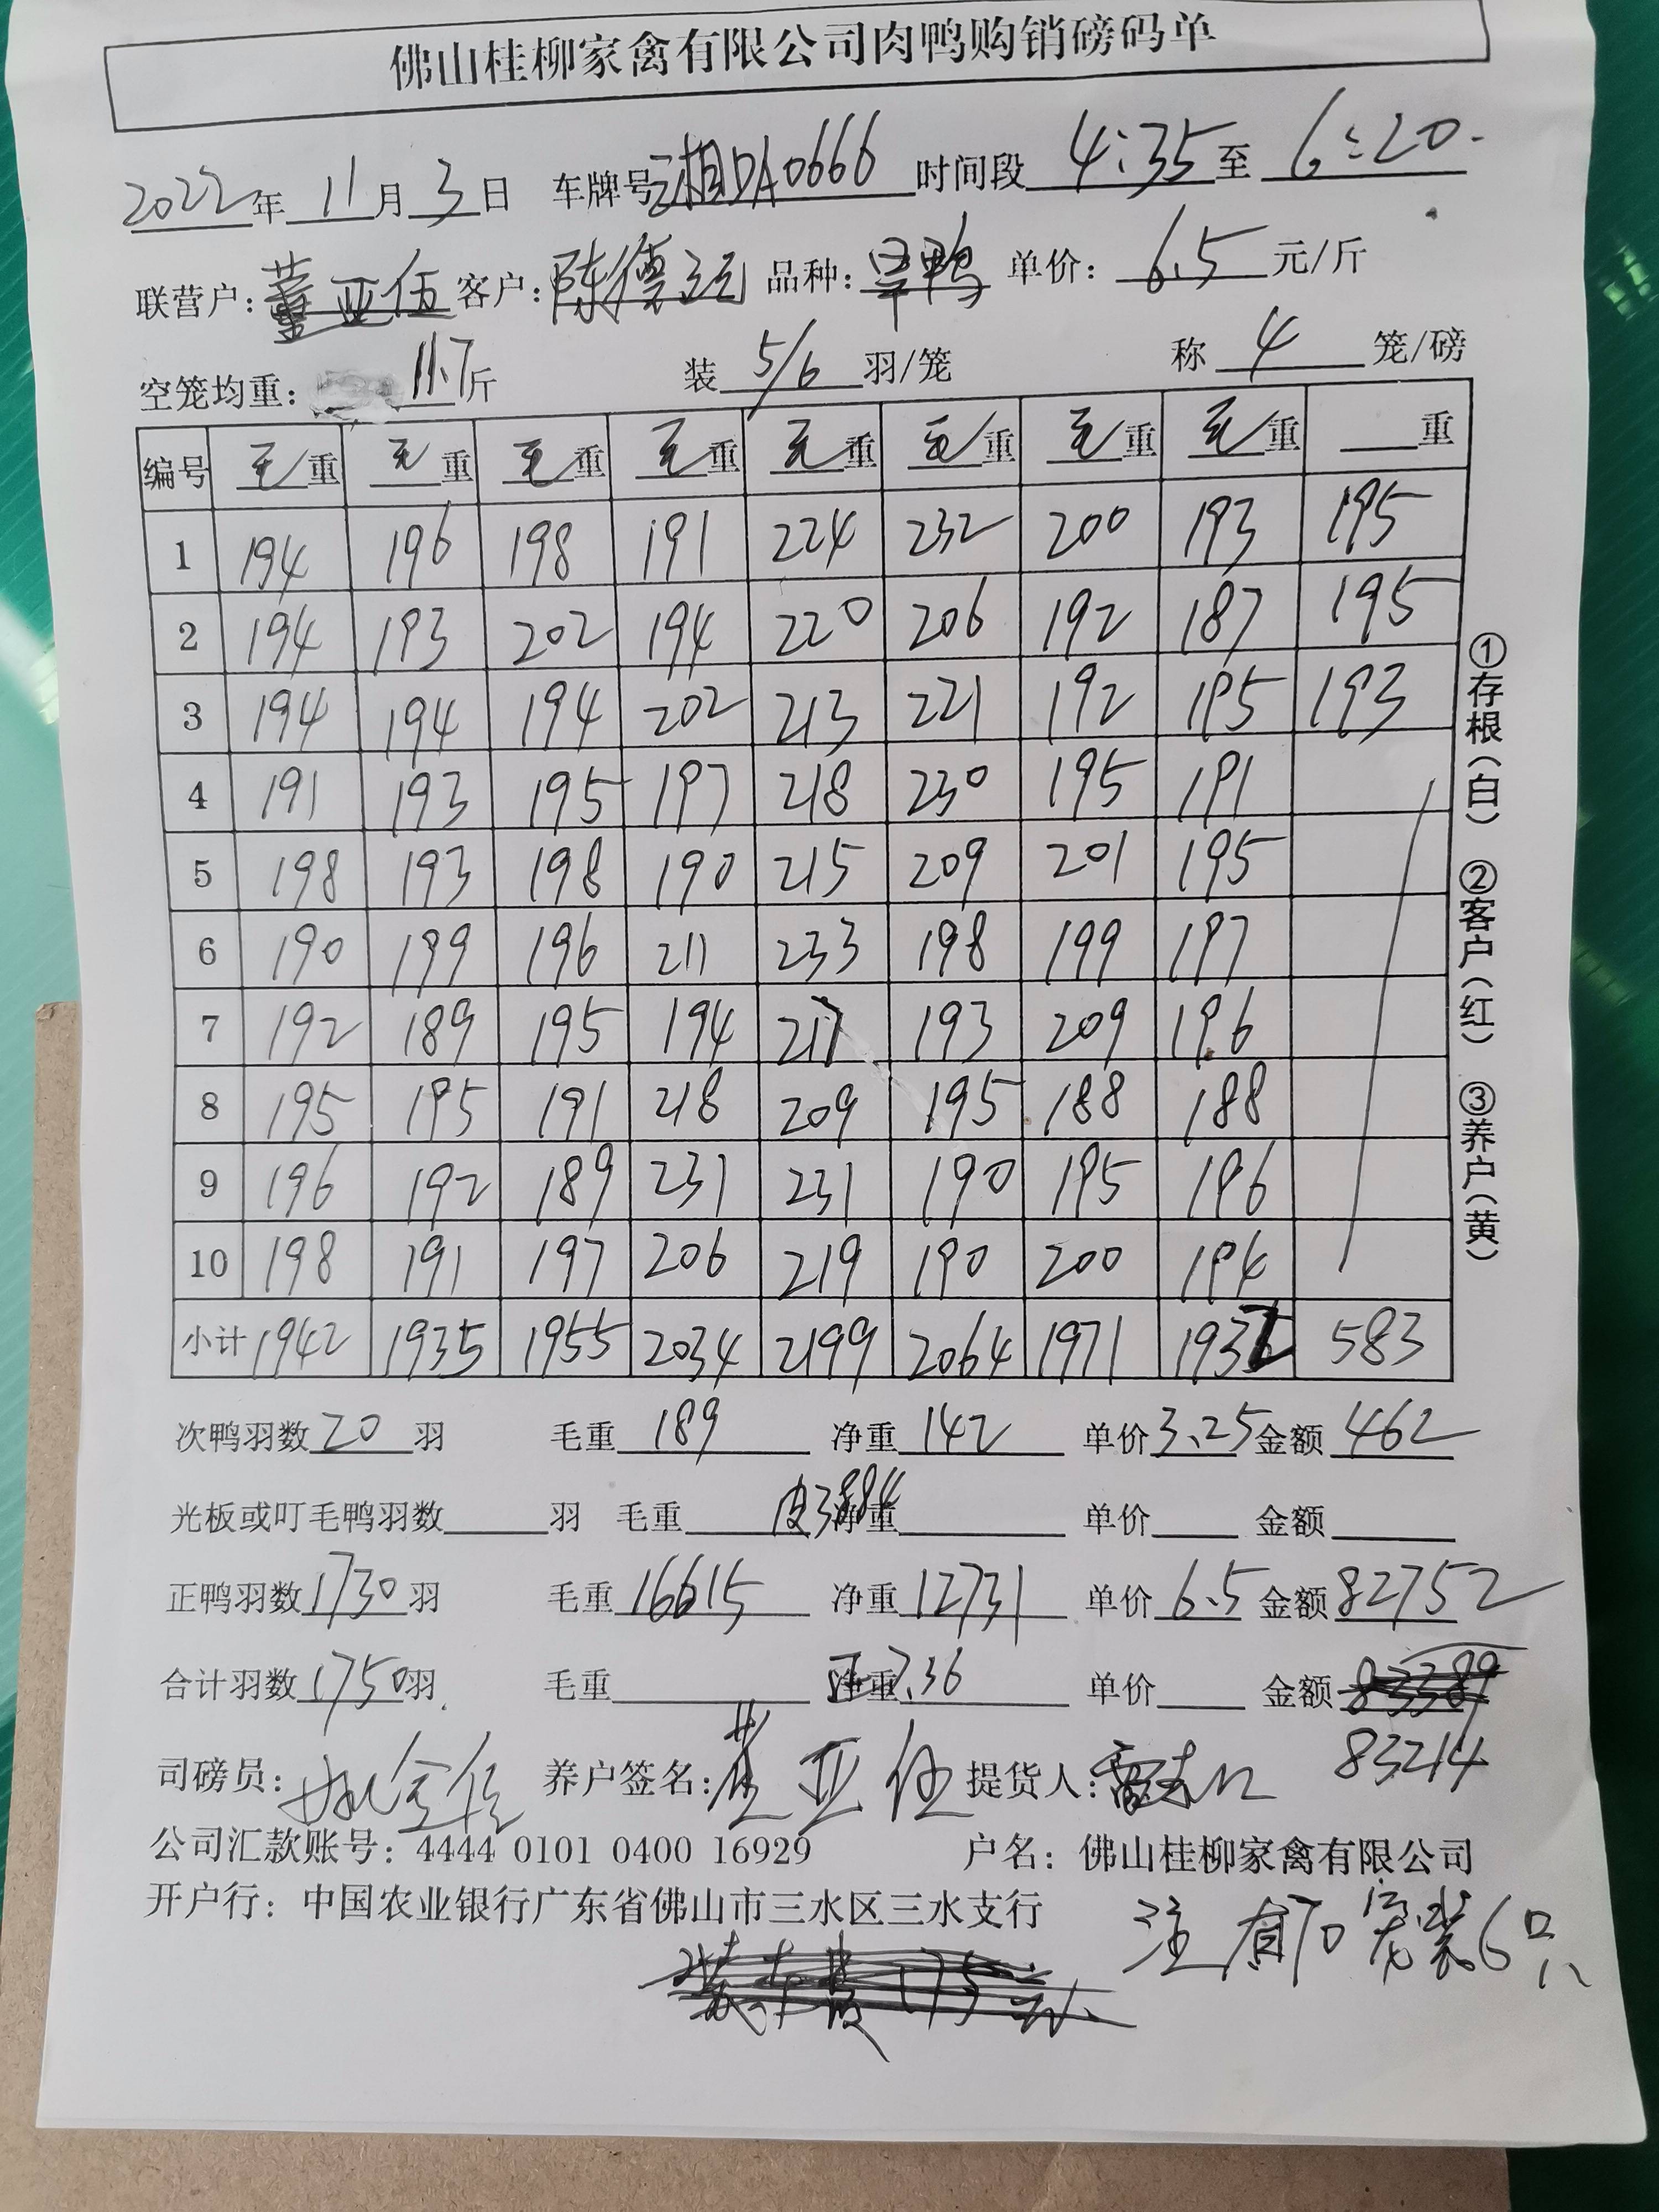 佛山桂柳家禽有限公司肉鸭购销磅码单
2022年 11月 3日 车牌号 湘DA0666 时间段 4:35 至 6:20.
联营户: 董亚伍 客户: 陈德 品种: 旱鸭 单价: 6.5 元/斤
空笼均重: 11.7斤 装 5/6 羽/笼 称 4 笼/磅
编号 毛重 毛重 毛重 毛重 毛重 毛重 毛重 毛重 重
1 194 196 198 191 224 232 200 193 195
2 194 193 202 194 220 206 192 187 195
3 194 194 194 202 213 221 192 195 193
4 191 193 195 197 218 230 195 191
5 198 193 198 190 215 209 201 195
6 190 199 196 211 233 198 199 197
7 192 189 195 194 217 193 209 196
8 195 195 191 218 209 195 188 188
9 196 192 189 231 231 190 195 196
10 198 191 197 206 219 190 200 194
小计 1942 1935 1955 2034 2199 2064 1971 1932 583
①存根(白) ②客户(红) ③养户(黄)
次鸭羽数 20 羽 毛重 189 净重 142 单价 3.25 金额 462
光板或叮毛鸭羽数 羽 毛重 皮3884 净重 单价 金额
正鸭羽数 1730 羽 毛重 16615 净重 12731 单价 6.5 金额 82752
合计羽数 1750羽. 毛重 净重 正7.36 单价 金额 83389
83214
司磅员: 养户签名: 董亚伍 提货人:
公司汇款账号: 4444 0101 0400 16929 户名: 佛山桂柳家禽有限公司
开户行: 中国农业银行广东省佛山市三水区三水支行
注 有70笼装6只
装车费 175元